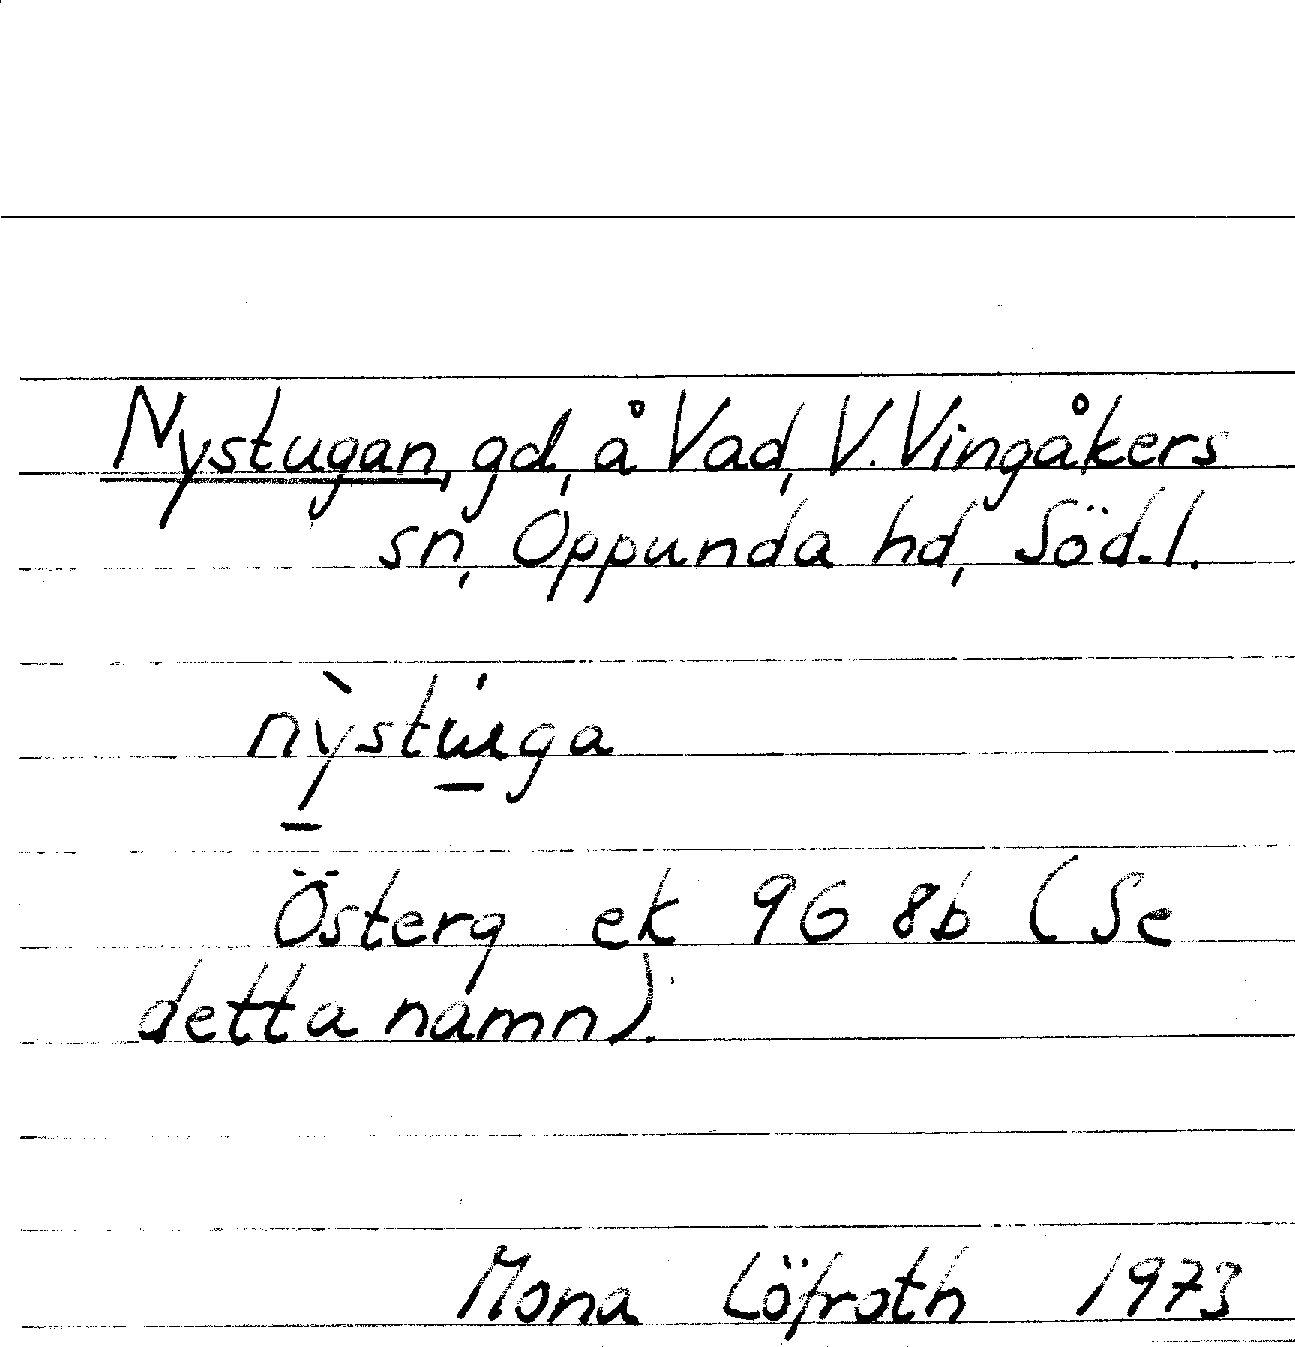 Nystugan, gd, å Vad, V. Vingåkers
sn, Oppunda hd, Söd.l.
nỳ̱stɯ̱̇ga
Österg ek 9G 8b (Se
detta namn).
Mona Löfroth 1973